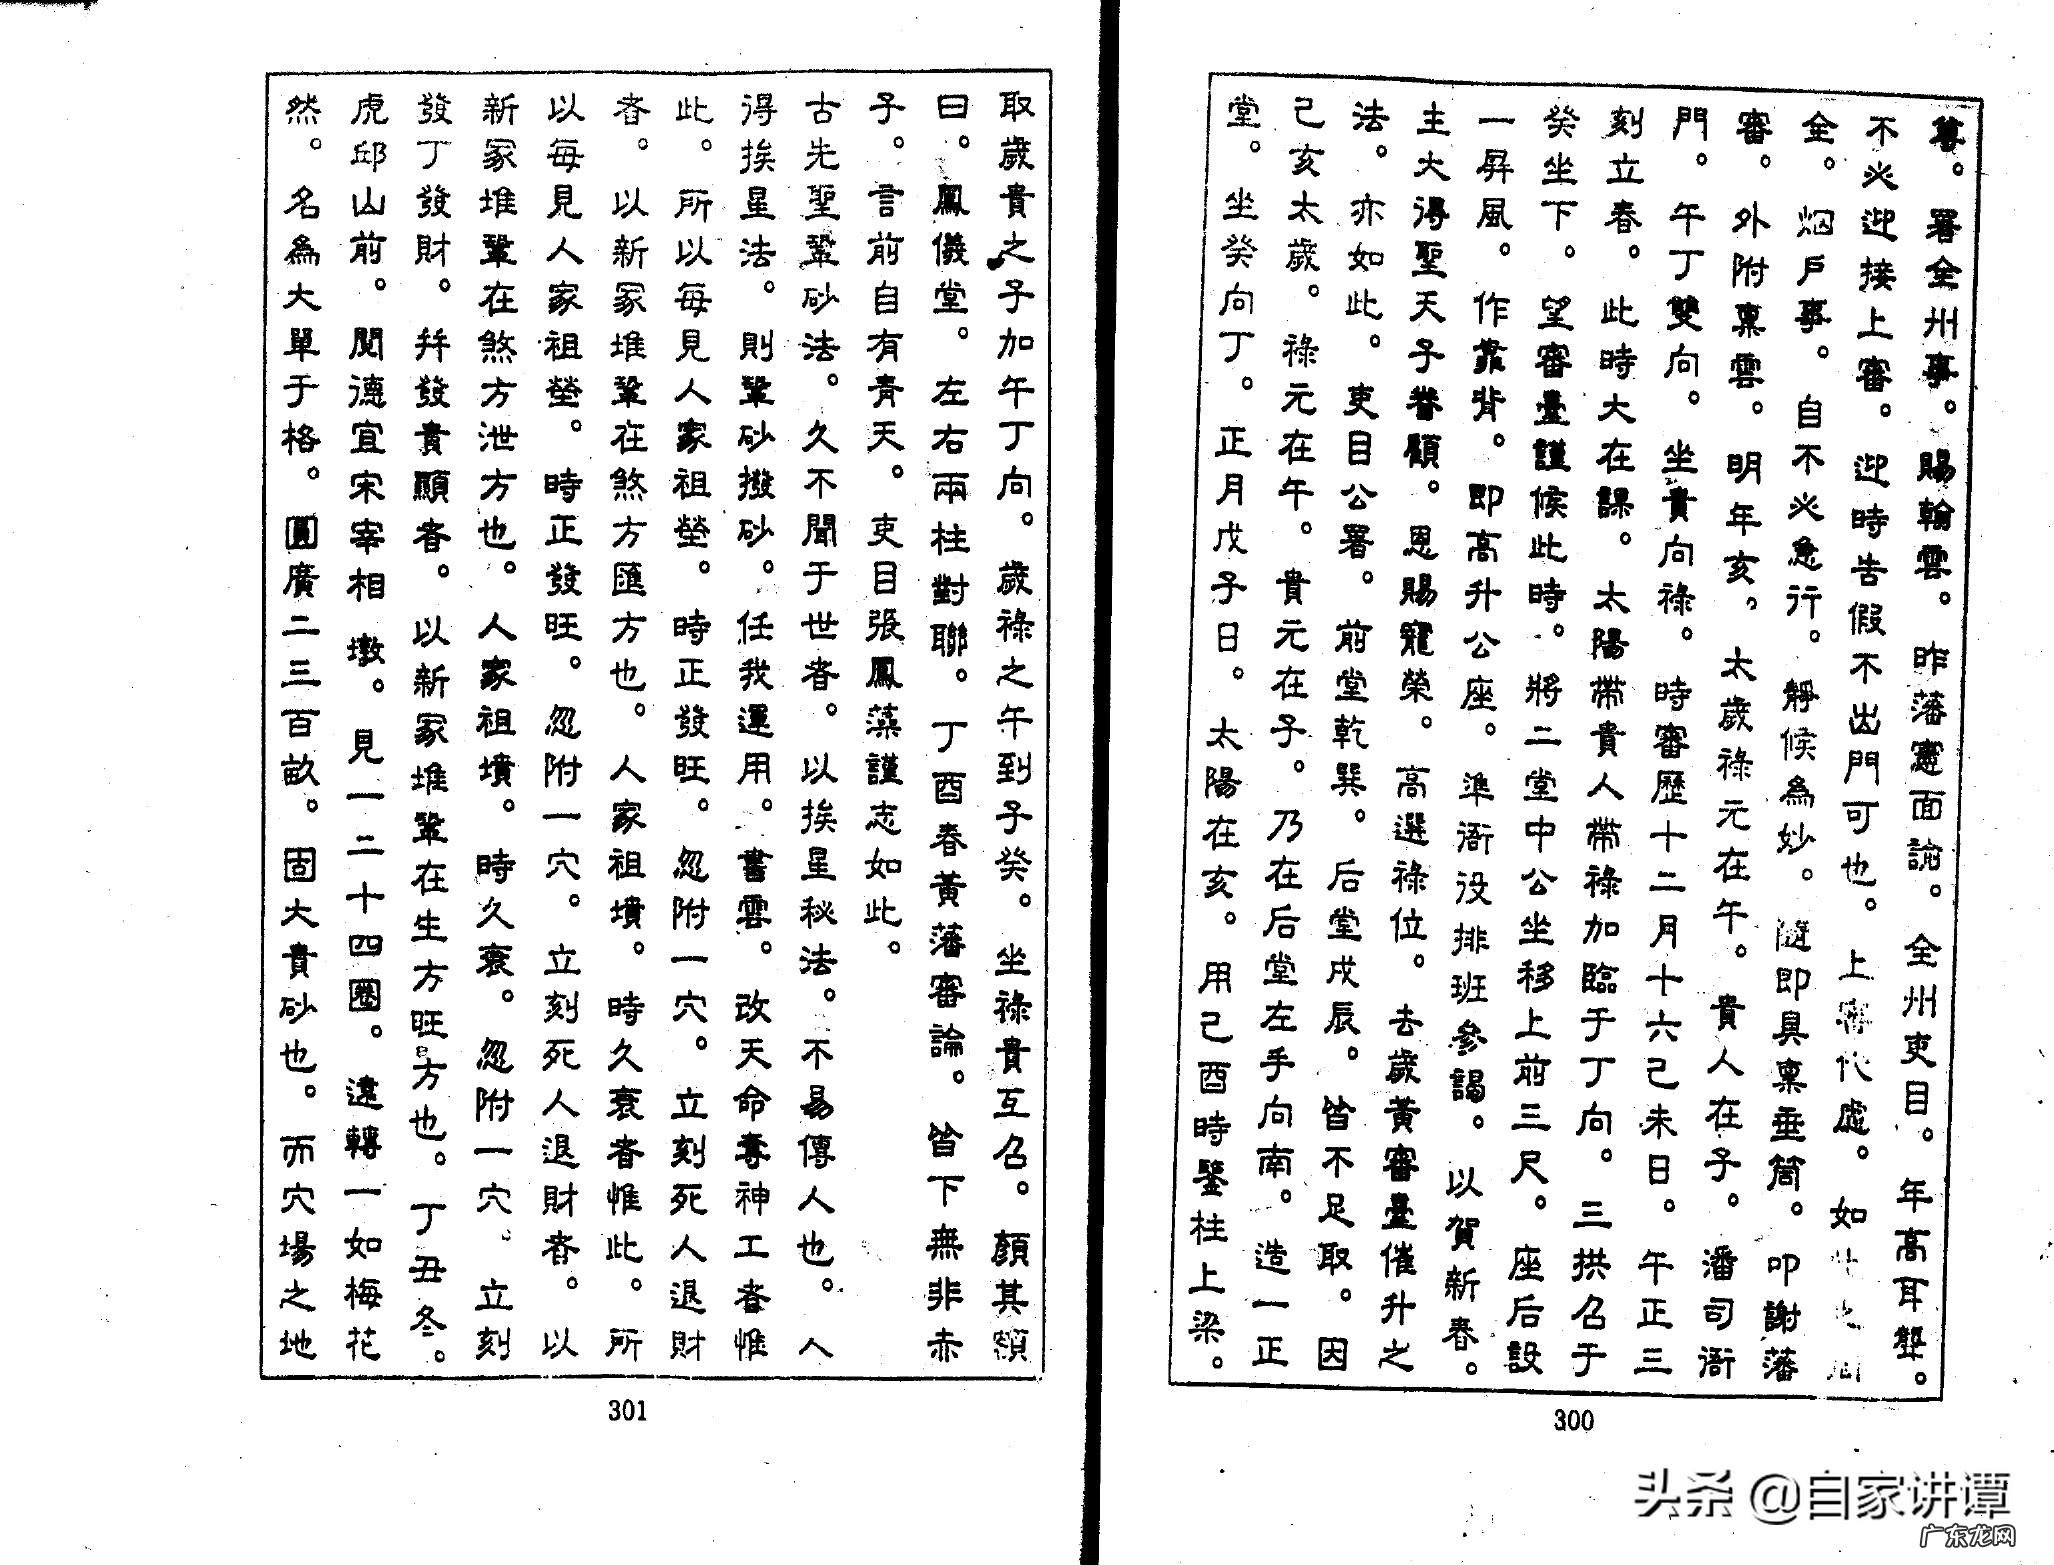 尊。署全州事。賜翰雲。昨藩憲面諭。全州吏目。年高耳聾。
不必迎接上審。迎時告假不出門可也。上審代處。如
全。烟戶事。自不必急行。靜候為妙。隨即具稟垂筒。叩謝藩
審。外附稟雲。明年亥。太歲祿元在午。貴人在子。潘司衙
門。午丁雙向。坐貴向祿。時審歷十二月十六己未日。午正三
刻立春。此時大在課。太陽帶貴人帶祿加臨于丁向。三拱召于
癸坐下。望審臺謹候此時。將二堂中公坐移上前三尺。座后設
一屛風。作靠背。即高升公座。準衙役排班參謁。以賀新春。
主大得聖天子眷顧。恩賜寵榮。高選祿位。去歲黃審臺催升之
法。亦如此。吏目公署。前堂乾巽。后堂戌辰。皆不足取。因
己亥太歲。祿元在午。貴元在子。乃在后堂左手向南。造一正
堂。坐癸向丁。正月戊子日。太陽在亥。用己酉時鑒柱上梁。
300
取歲貴之子加午丁向。歲祿之午到子癸。坐祿貴互召。顏其額
曰。鳳儀堂。左右兩柱對聯。丁酉春黃藩審論。皆下無非赤
子。言前自有青天。吏目張鳳藻謹志如此。
古先聖鞏砂法。久不聞于世者。以挨星秘法。不易傳人也。人
得挨星法。則鞏砂撥砂。任我運用。書雲。改天命奪神工者惟
此。所以每見人家祖塋。時正發旺。忽附一穴。立刻死人退財
者。以新冢堆鞏在煞方匯方也。人家祖墳。時久衰者惟此。所
以每見人家祖塋。時正發旺。忽附一穴。立刻死人退財者。以
新冢堆鞏在煞方泄方也。人家祖墳。時久衰。忽附一穴。立刻
發丁發財。幷發貴顯者。以新冢堆鞏在生方旺方也。丁丑冬。
虎邱山前。閱德宜宋宰相墩。見一二十四圈。遠轉一如梅花
然。名為大單于格。圓廣二三百畝。固大貴砂也。而穴場之地
301
头条 @自家讲谭
广东龙网